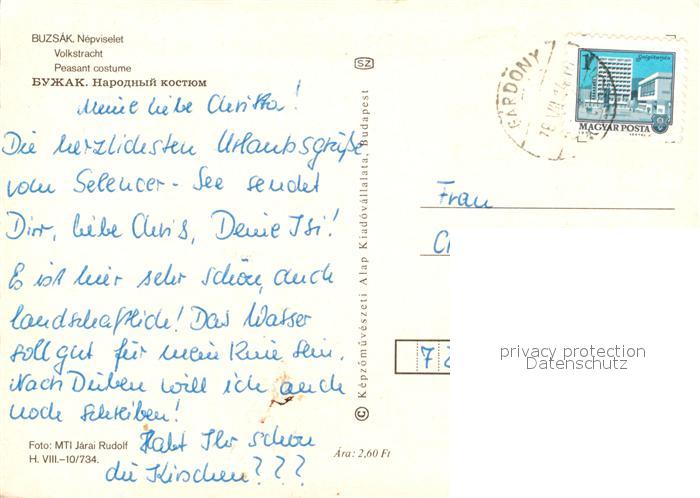 BUZSÁK. Népviselet
Volkstracht
Peasant costume
БУЖАК. Народный костюм
Meine liebe Christa!
Die herzlichsten Urlaubsgrüße
vom Selencer-See sendet
Dir, liebe Chris, Deine Isi!
Es ist hier sehr schön, auch
landschaftlich! Das Wasser
soll gut für mein Knie sein.
Nach Düben will ich auch
noch schreiben!
Habt Ihr schon
die Kirschen???
Foto: MTI Járai Rudolf
H. VIII.–10/734.
Ára: 2,60 Ft
© Képzőművészeti Alap Kiadóvállalata, Budapest
SZ
GÁRDONY
Salgótarján
MAGYAR POSTA
Frau
C
7 2
privacy protection
Datenschutz